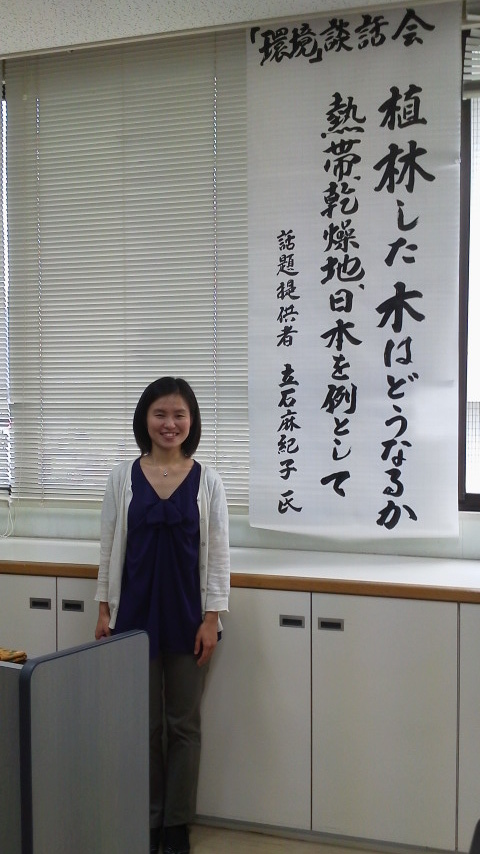 「環境」談話会
植林した木はどうなるか
熱帯、乾燥地、日本を例として
話題提供者 立石麻紀子氏